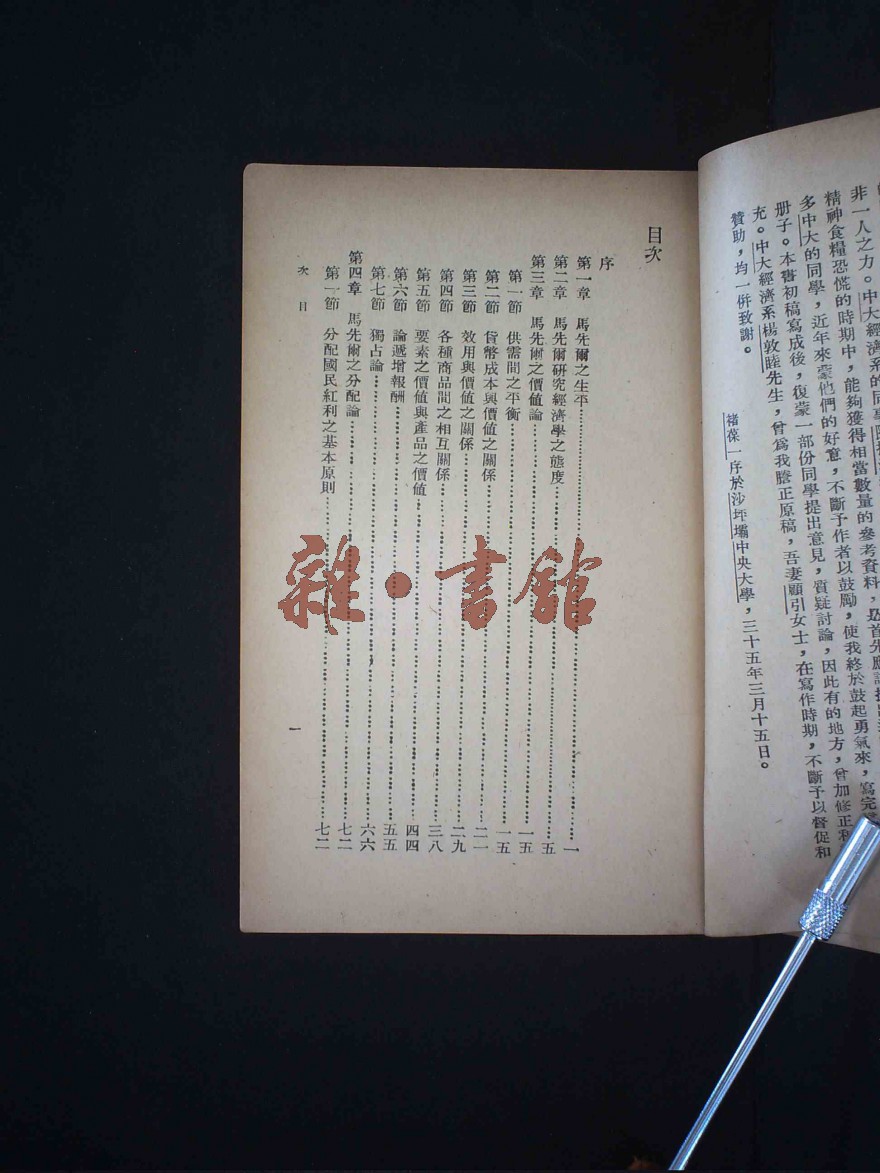 非一人之力。中大經濟系的同事
精神食糧恐慌的時期中，能夠獲得相當數量的參考資料，是首先應該
多中大的同學，近年來蒙他們的好意，不斷予作者以鼓勵，使我終於鼓起勇氣來，寫完
册子。本書初稿寫成後，復蒙一部份同學提出意見，質疑討論，因此有的地方，曾加修正和
充。中大經濟系楊敦睦先生，曾爲我謄正原稿，吾妻顧引女士，在寫作時期，不斷予以督促和
贊助，均一併致謝。
褚葆一序於沙坪壩中央大學，三十五年三月十五日。
目次
序
第一章 馬先爾之生平……一
第二章 馬先爾研究經濟學之態度……五
第三章 馬先爾之價值論……一五
第一節 供需間之平衡……一五
第二節 貨幣成本與價值之關係……二一
第三節 效用與價值之關係……二九
第四節 各種商品間之相互關係……三八
第五節 要素之價值與產品之價值……四四
第六節 論遞增報酬……五五
第七節 獨占論……六六
第四章 馬先爾之分配論……七二
第一節 分配國民紅利之基本原則……七二
次目
一
雜·書館